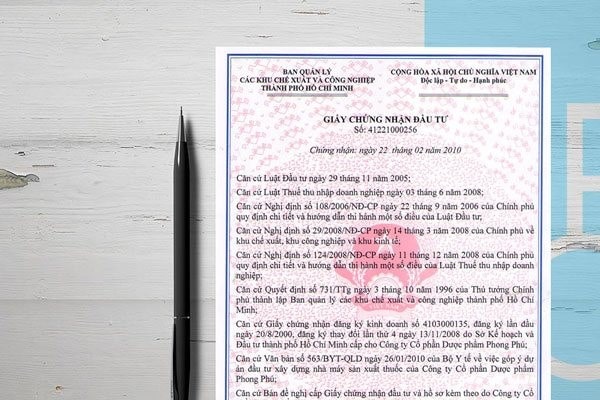 BAN QUẢN LÝ
CÁC KHU CHẾ XUẤT VÀ CÔNG NGHIỆP
THÀNH PHỐ HỒ CHÍ MINH
CỘNG HÒA XÃ HỘI CHỦ NGHĨA VIỆT NAM
Độc lập - Tự do - Hạnh phúc
GIẤY CHỨNG NHẬN ĐẦU TƯ
Số: 41221000256
Chứng nhận: ngày 22 tháng 02 năm 2010
Căn cứ Luật Đầu tư ngày 29 tháng 11 năm 2005;
Căn cứ Luật Thuế thu nhập doanh nghiệp ngày 03 tháng 6 năm 2008;
Căn cứ Nghị định số 108/2006/NĐ-CP ngày 22 tháng 9 năm 2006 của Chính phủ
quy định chi tiết và hướng dẫn thi hành một số điều của Luật Đầu tư;
Căn cứ Nghị định số 29/2008/NĐ-CP ngày 14 tháng 3 năm 2008 của Chính phủ về
khu chế xuất, khu công nghiệp và khu kinh tế;
Căn cứ Nghị định số 124/2008/NĐ-CP ngày 11 tháng 12 năm 2008 của Chính phủ
quy định chi tiết và hướng dẫn thi hành một số điều của Luật Thuế thu nhập doanh
nghiệp;
Căn cứ Quyết định số 731/TTg ngày 3 tháng 10 năm 1996 của Thủ tướng Chính
phủ thành lập Ban quản lý các khu chế xuất và công nghiệp thành phố Hồ Chí
Minh;
Căn cứ Giấy chứng nhận đăng ký kinh doanh số 4103000135, đăng ký lần đầu
ngày 20/8/2000, đăng ký thay đổi lần thứ 4 ngày 13/11/2008 do Sở Kế hoạch và
Đầu tư thành phố Hồ Chí Minh cấp cho Công ty Cổ phần Dược phẩm Phong Phú;
Căn cứ Văn bản số 563/BYT-QLD ngày 26/01/2010 của Bộ Y tế về việc góp ý dự
án đầu tư xây dựng nhà máy sản xuất thuốc của Công ty Cổ phần Dược phẩm
Phong Phú;
Căn cứ Bản đề nghị cấp Giấy chứng nhận đầu tư và hồ sơ kèm theo do Công ty Cổ